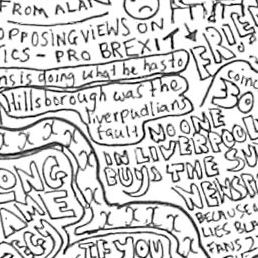 FROM ALAN
OPPOSING VIEWS ON
TICS - PRO BREXIT
ns is doing what he has to
Hillsborough was the
liverpudlians
fault
FRIE
coinc
30
NO ONE
IN LIVERPOOL
BUYS THE SU
NEWSPA
BECAUSE O
LIES BLA
FANS
ONG
AME
IF YOU